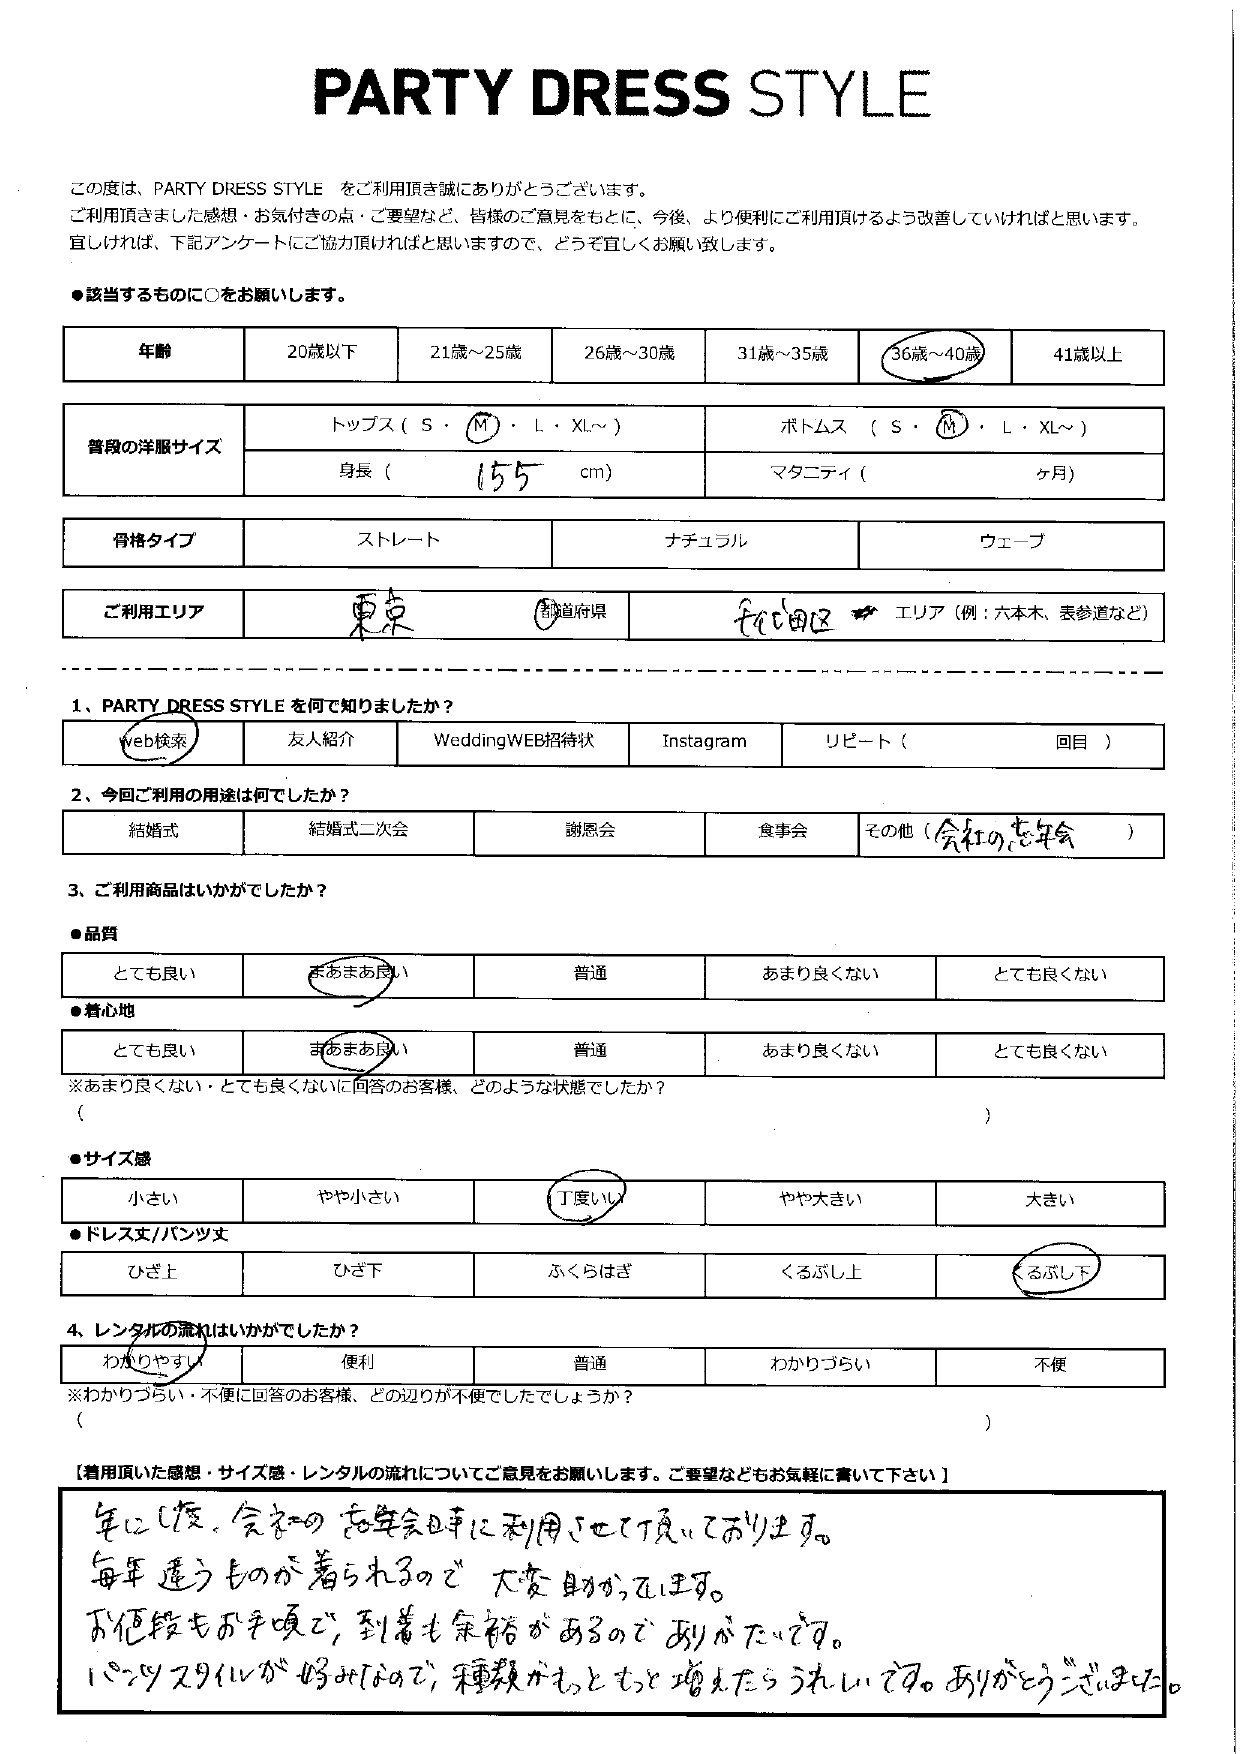 PARTY DRESS STYLE
この度は、PARTY DRESS STYLE　をご利用頂き誠にありがとうございます。
ご利用頂きました感想・お気付きの点・ご要望など、皆様のご意見をもとに、今後、より便利にご利用頂けるよう改善していければと思います。
宜しければ、下記アンケートにご協力頂ければと思いますので、どうぞ宜しくお願い致します。
●該当するものに○をお願いします。
年齢 20歳以下 21歳～25歳 26歳～30歳 31歳～35歳 36歳～40歳 41歳以上
普段の洋服サイズ トップス ( S ・ M ・ L ・ XL～ ) ボトムス ( S ・ M ・ L ・ XL～ )
身長 ( 155 cm) マタニティ ( ヶ月)
骨格タイプ ストレート ナチュラル ウェーブ
ご利用エリア 東京 都道府県 千代田区 エリア（例：六本木、表参道など）
1、PARTY DRESS STYLE を何で知りましたか？
web検索 友人紹介 WeddingWEB招待状 Instagram リピート ( 回目 )
2、今回ご利用の用途は何でしたか？
結婚式 結婚式二次会 謝恩会 食事会 その他 ( 会社の忘年会 )
3、ご利用商品はいかがでしたか？
●品質
とても良い まあまあ良い 普通 あまり良くない とても良くない
●着心地
とても良い まあまあ良い 普通 あまり良くない とても良くない
※あまり良くない・とても良くないに回答のお客様、どのような状態でしたか？
( )
●サイズ感
小さい やや小さい 丁度いい やや大きい 大きい
●ドレス丈/パンツ丈
ひざ上 ひざ下 ふくらはぎ くるぶし上 くるぶし下
4、レンタルの流れはいかがでしたか？
わかりやすい 便利 普通 わかりづらい 不便
※わかりづらい・不便に回答のお客様、どの辺りが不便でしたでしょうか？
( )
【着用頂いた感想・サイズ感・レンタルの流れについてご意見をお願いします。ご要望などもお気軽に書いて下さい 】
年に1度、会社の忘年会時に利用させて頂いております。
毎年違うものが着られるので 大変助かっています。
お値段もお手頃で、到着も余裕があるのでありがたいです。
パンツスタイルが好みなので、種類がもっともっと増えたらうれしいです。ありがとうございました。